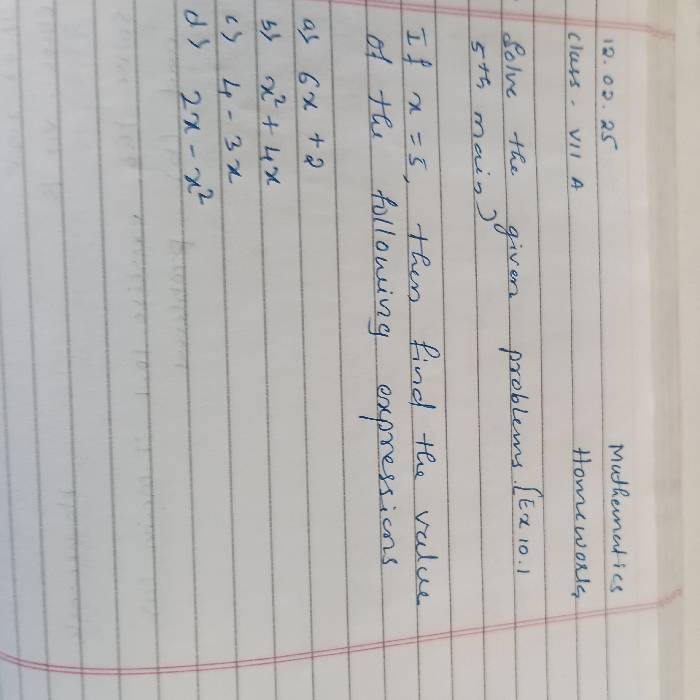 12.02.25 Mathematics
Class. VII A Homework
Solve the given problems. [Ex 10.1
5th main)
If x = 5, then find the value
of the following expressions
a) 6x + 2
b) x² + 4x
c) 4 - 3x
d) 2x - x²